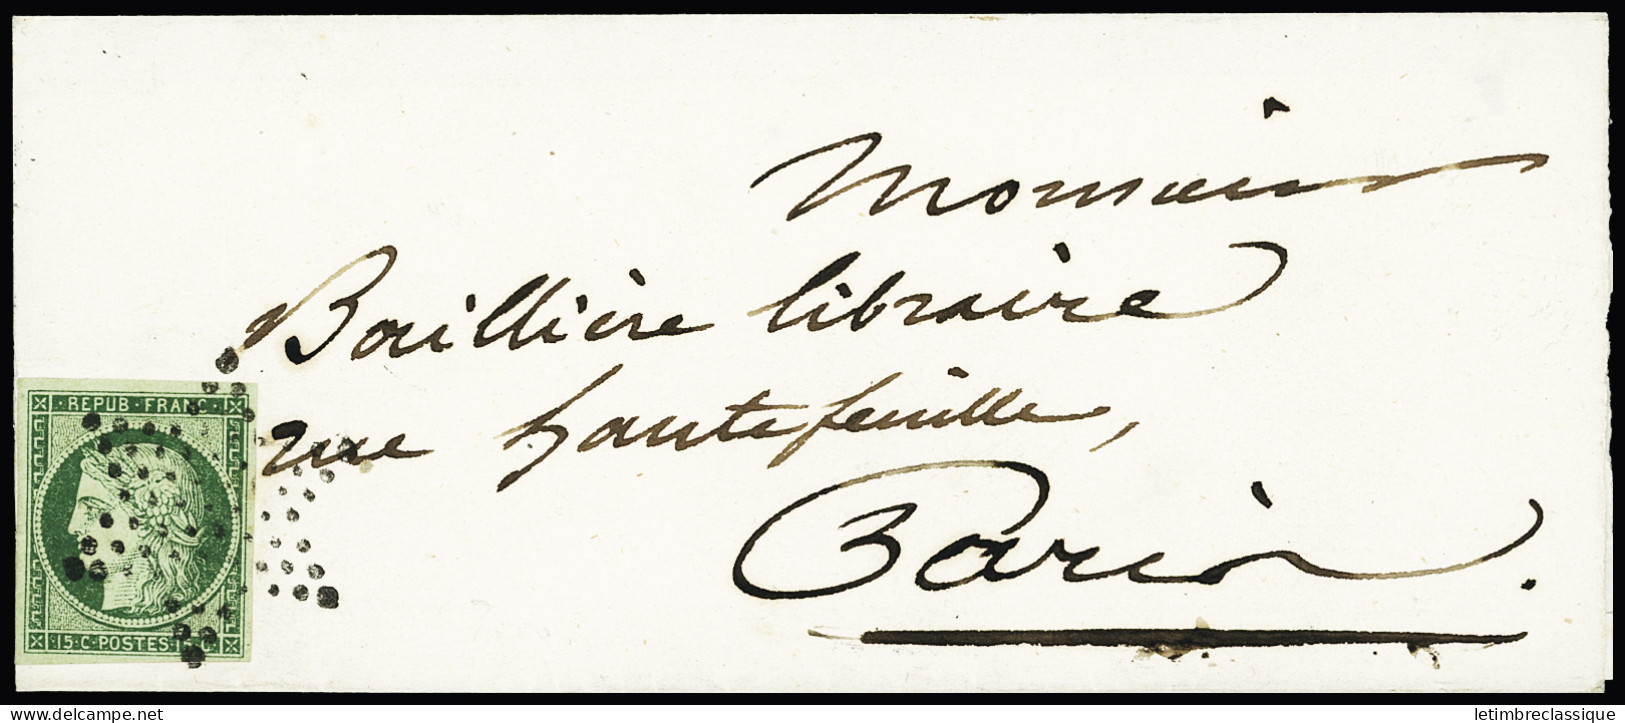 Monsieur
Baillière libraire
rue hautefeuille,
Paris.
REPUB·FRANC·
15·C·POSTES·15·C·
www.delcampe.net
letimbreclassique